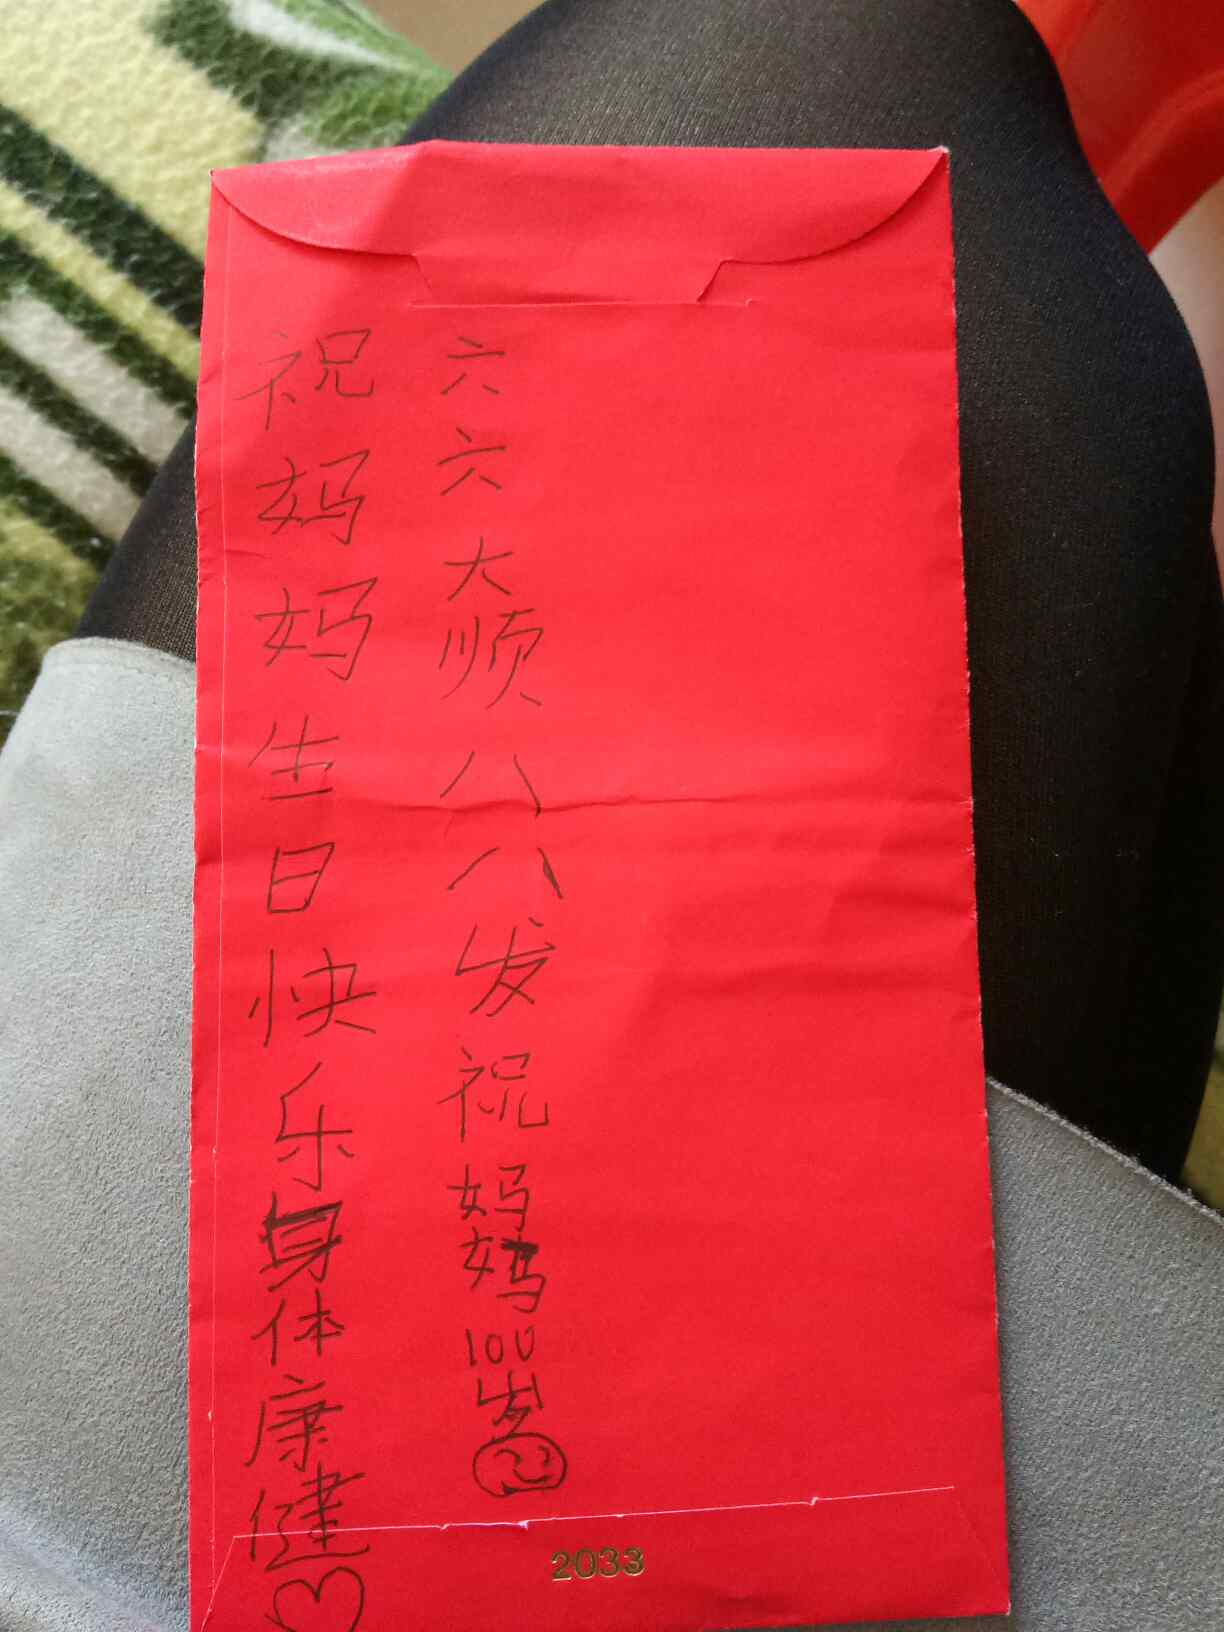 祝妈妈生日快乐身体康健
六六大顺八八发祝妈妈100岁
2033